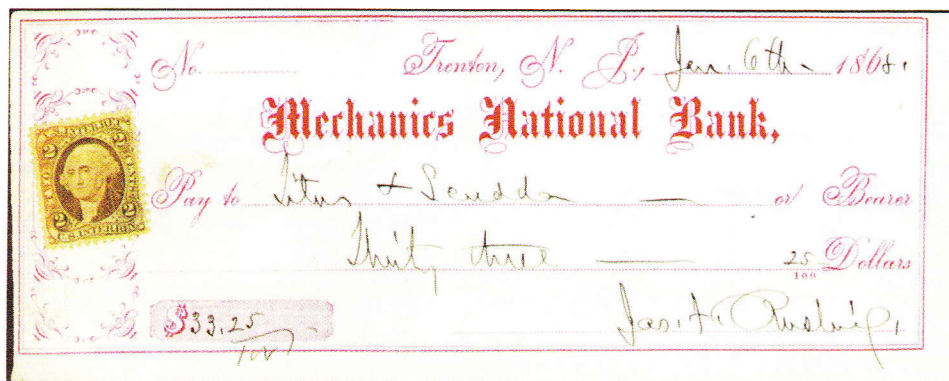 No. Trenton, N. J., Jan. 6th 1868.
Mechanics National Bank,
Pay to Titus + Scudder or Bearer
Thirty three 25/100 Dollars
$33.25/100
Jas. H.
U.S. INTER. REV.
2 2
TWO CENTS
2 2
U.S. INTER. REV.